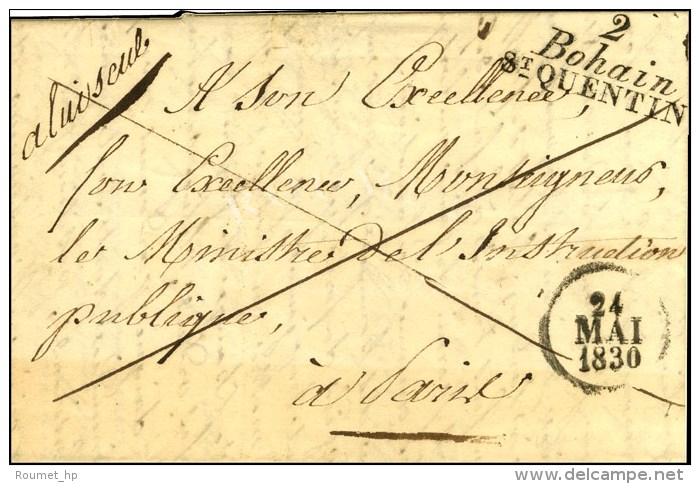 2
Bohain
ST QUENTIN
a lui seul
A Son Excellence,
Son Excellence, Monseigneur,
le Ministre de l'Instruction
publique,
à Paris
24
MAI
1830
Roumet_hp
www.delcampe.net